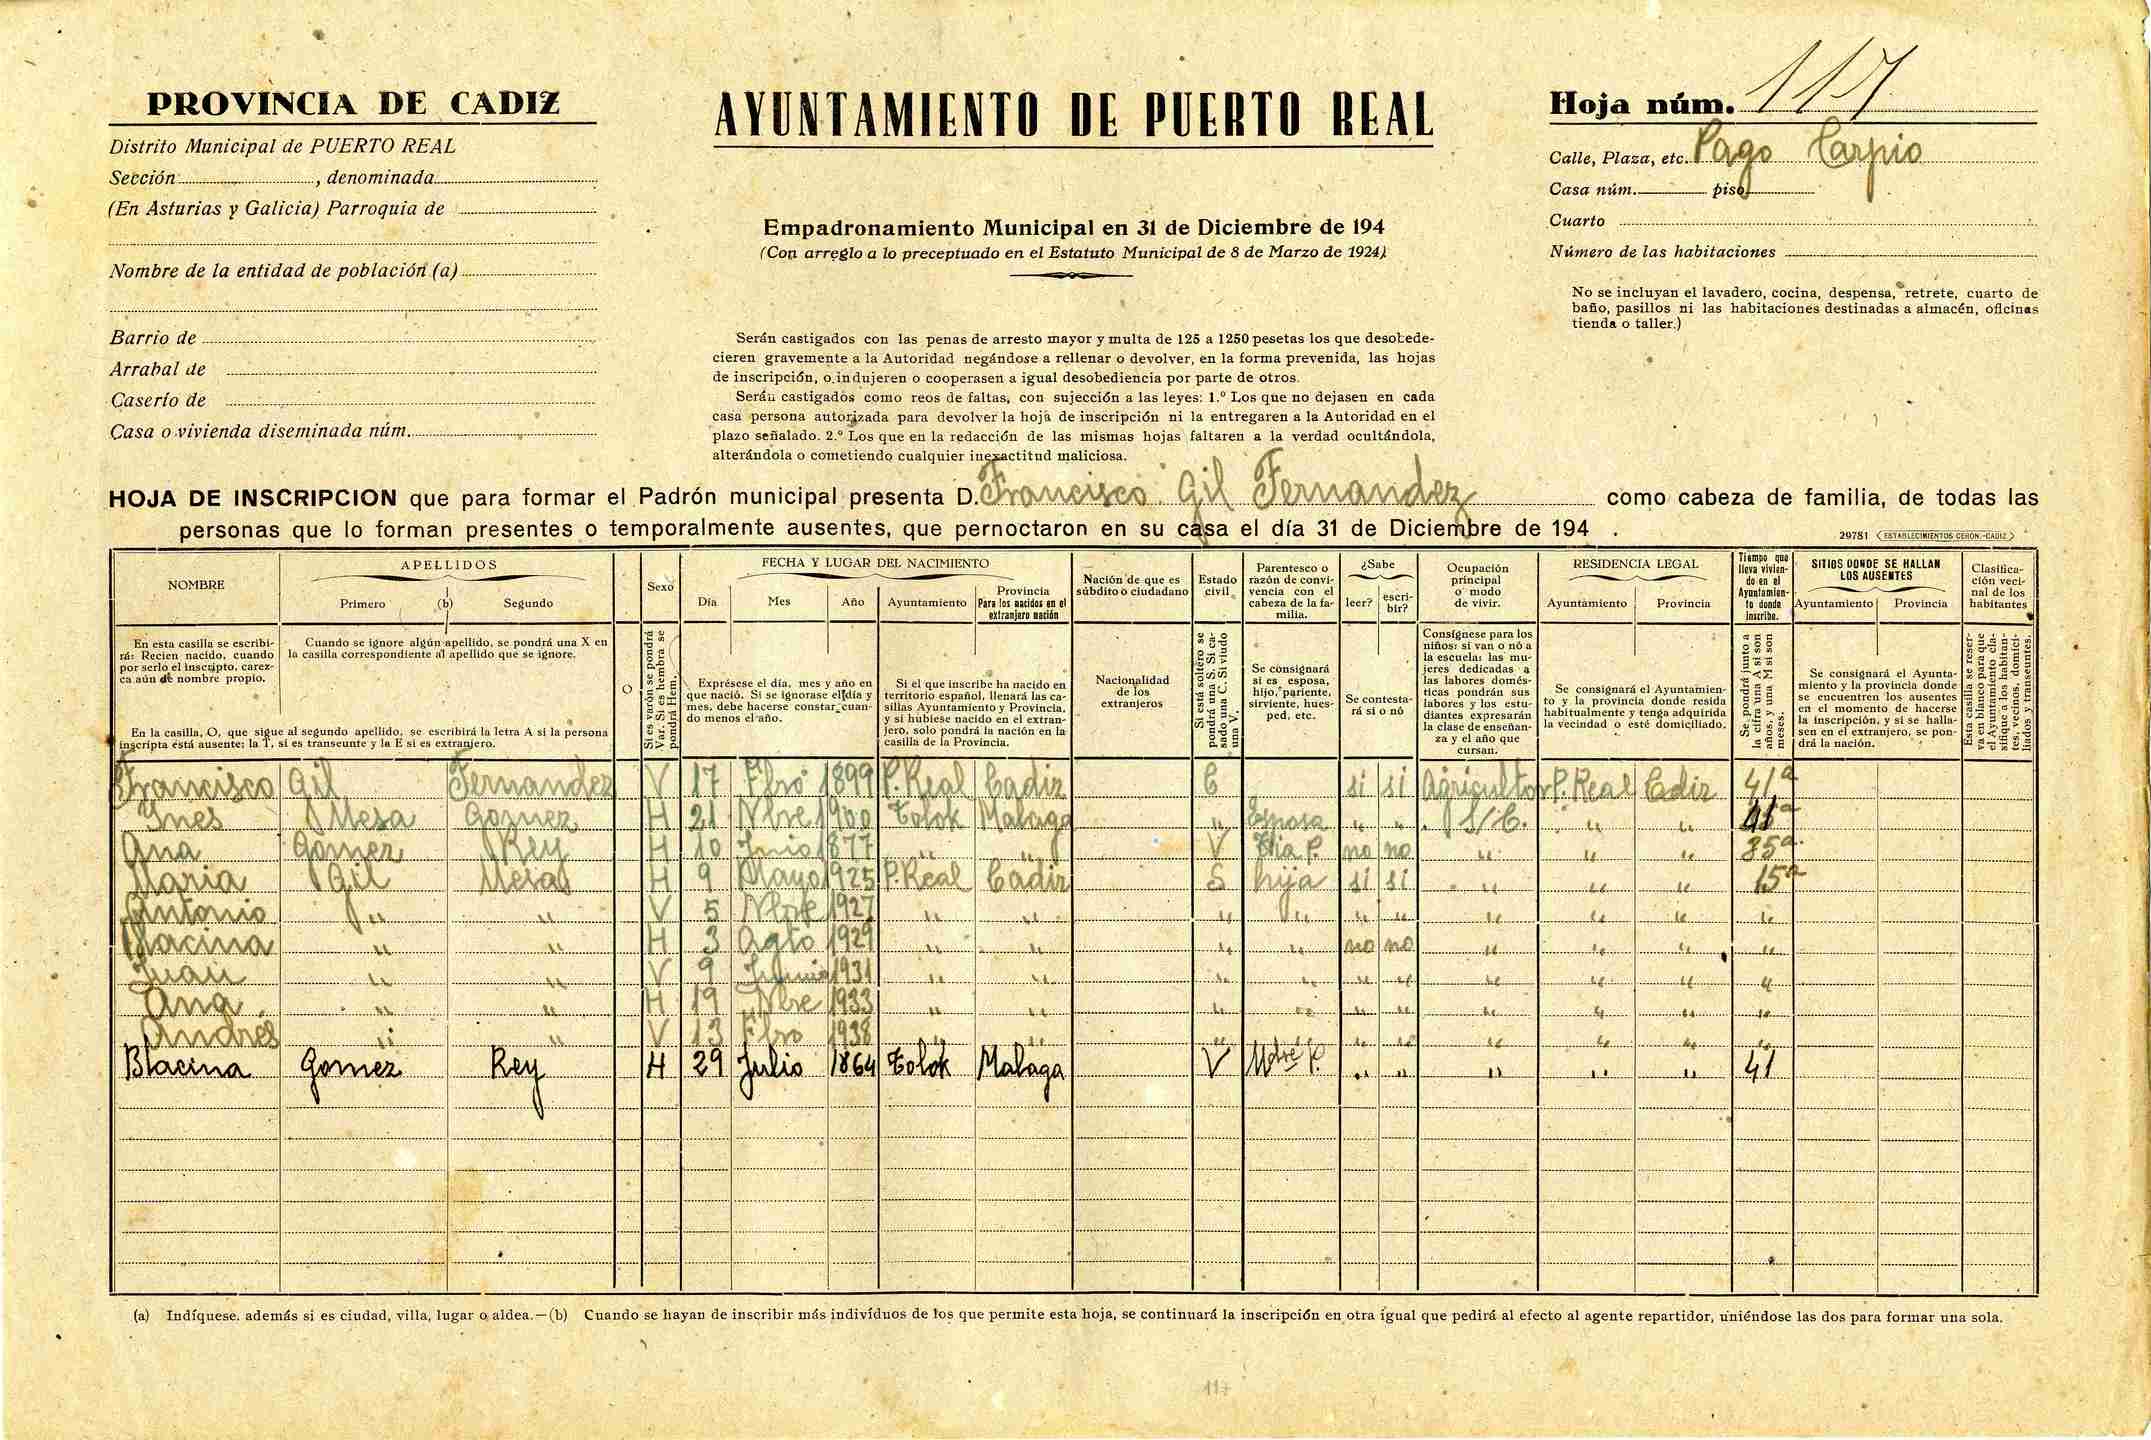 PROVINCIA DE CADIZ
Distrito Municipal de PUERTO REAL
Sección , denominada
(En Asturias y Galicia) Parroquia de
Nombre de la entidad de población (a)
Barrio de
Arrabal de
Caserío de
Casa o vivienda diseminada núm.
AYUNTAMIENTO DE PUERTO REAL
Empadronamiento Municipal en 31 de Diciembre de 194
(Con arreglo a lo preceptuado en el Estatuto Municipal de 8 de Marzo de 1924)
Serán castigados con las penas de arresto mayor y multa de 125 a 1250 pesetas los que desobede-
cieren gravemente a la Autoridad negándose a rellenar o devolver, en la forma prevenida, las hojas
de inscripción, o indujeren o cooperasen a igual desobediencia por parte de otros.
Serán castigados como reos de faltas, con sujección a las leyes: 1.º Los que no dejasen en cada
casa persona autorizada para devolver la hoja de inscripción ni la entregaren a la Autoridad en el
plazo señalado. 2.º Los que en la redacción de las mismas hojas faltaren a la verdad ocultándola,
alterándola o cometiendo cualquier inexactitud maliciosa.
Hoja núm. 117
Calle, Plaza, etc. Pago Carpio
Casa núm. piso
Cuarto
Número de las habitaciones
No se incluyan el lavadero, cocina, despensa, retrete, cuarto de
baño, pasillos ni las habitaciones destinadas a almacén, oficinas
tienda o taller.)
HOJA DE INSCRIPCION que para formar el Padrón municipal presenta D. Francisco Gil Fernandez como cabeza de familia, de todas las
personas que lo forman presentes o temporalmente ausentes, que pernoctaron en su casa el día 31 de Diciembre de 194 .
29781 (ESTABLECIMIENTOS CERON.-CADIZ)
NOMBRE
APELLIDOS
Primero (b) Segundo
O
Sexo
FECHA Y LUGAR DEL NACIMIENTO
Día Mes Año Ayuntamiento
Provincia
Para los nacidos en el
extranjero nación
Nación de que es
súbdito o ciudadano
Estado
civil
Parentesco o
razón de convi-
vencia con el
cabeza de la fa-
milia.
¿Sabe
leer? escri-
bir?
Ocupación
principal
o modo
de vivir.
RESIDENCIA LEGAL
Ayuntamiento Provincia
Tiempo que
lleva vivien-
do en el
Ayuntamien-
to donde
inscribe.
SITIOS DONDE SE HALLAN
LOS AUSENTES
Ayuntamiento Provincia
Clasifica-
ción veci-
nal de los
habitantes
En esta casilla se escribi-
rá: Recien nacido, cuando
por serlo el inscripto, carez-
ca aún de nombre propio.
Cuando se ignore algún apellido, se pondrá una X en
la casilla correspondiente al apellido que se ignore.
En la casilla, O, que sigue al segundo apellido, se escribirá la letra A si la persona
inscripta está ausente; la T, si es transeunte y la E si es extranjero.
Si es varón se pondrá
Var. Si es hembra se
pondrá Hem.
Expresése el día, mes y año en
que nació. Si se ignorase el día y
mes, debe hacerse constar cuan-
do menos el año.
Si el que inscribe ha nacido en
territorio español, llenará las ca-
sillas Ayuntamiento y Provincia,
y si hubiese nacido en el extran-
jero, solo pondrá la nación en la
casilla de la Provincia.
Nacionalidad
de los
extranjeros
Si está soltero se
pondrá una S. Si ca-
sado una C. Si viudo
una V.
Se consignará
si es esposa,
hijo, pariente,
sirviente, hues-
ped, etc.
Se contesta-
rá si o nó
Consígnese para los
niños: si van o nó a
la escuela: las mu-
jeres dedicadas a
las labores domés-
ticas pondrán sus
labores y los estu-
diantes expresarán
la clase de enseñan-
za y el año que
cursan.
Se consignará el Ayuntamien-
to y la provincia donde resida
habitualmente y tenga adquirida
la vecindad o esté domiciliado.
Se pondrá junto a
la cifra una A si son
años, y una M si son
meses.
Se consignará el Ayunta-
miento y la provincia donde
se encuentren los ausentes
en el momento de hacerse
la inscripción, y si se halla-
sen en el extranjero, se pon-
drá la nación.
Esta casilla se reser-
va en blanco para que
el Ayuntamiento cla-
sifique a los habitan-
tes, vecinos, domici-
liados y transeuntes.
Francisco Gil Fernandez V 17 Fbro 1899 P. Real Cadiz C si si Agricultor P. Real Cadiz 41a
Ynes Mesa Gomez H 21 Nbre 1900 Tolok Malaga " Esposa " " S/C. " " 41a
Ana Gomez Rey H 10 Junio 1877 " " V Tia P. no no " " " 35a
Maria Gil Mesa H 9 Mayo 1925 P. Real Cadiz S hija si si " " " 15a
Antonio " " V 5 Nbre 1927 " " " " " " " " " "
Blacina " " H 3 Agto 1929 " " " " no no " " " "
Juan " " V 9 Junio 1931 " " " " " " " " " "
Ana " " H 19 Nbre 1933 " " " " " " " " " "
Andrés " " V 13 Fbro 1938 " " " " " " " " " "
Blacina Gomez Rey H 29 Julio 1864 Tolok Malaga V Mdre P. " " " " " 41
(a) Indíquese. además si es ciudad, villa, lugar o aldea.—(b) Cuando se hayan de inscribir más indivíduos de los que permite esta hoja, se continuará la inscripción en otra igual que pedirá al efecto al agente repartidor, uniéndose las dos para formar una sola.
117